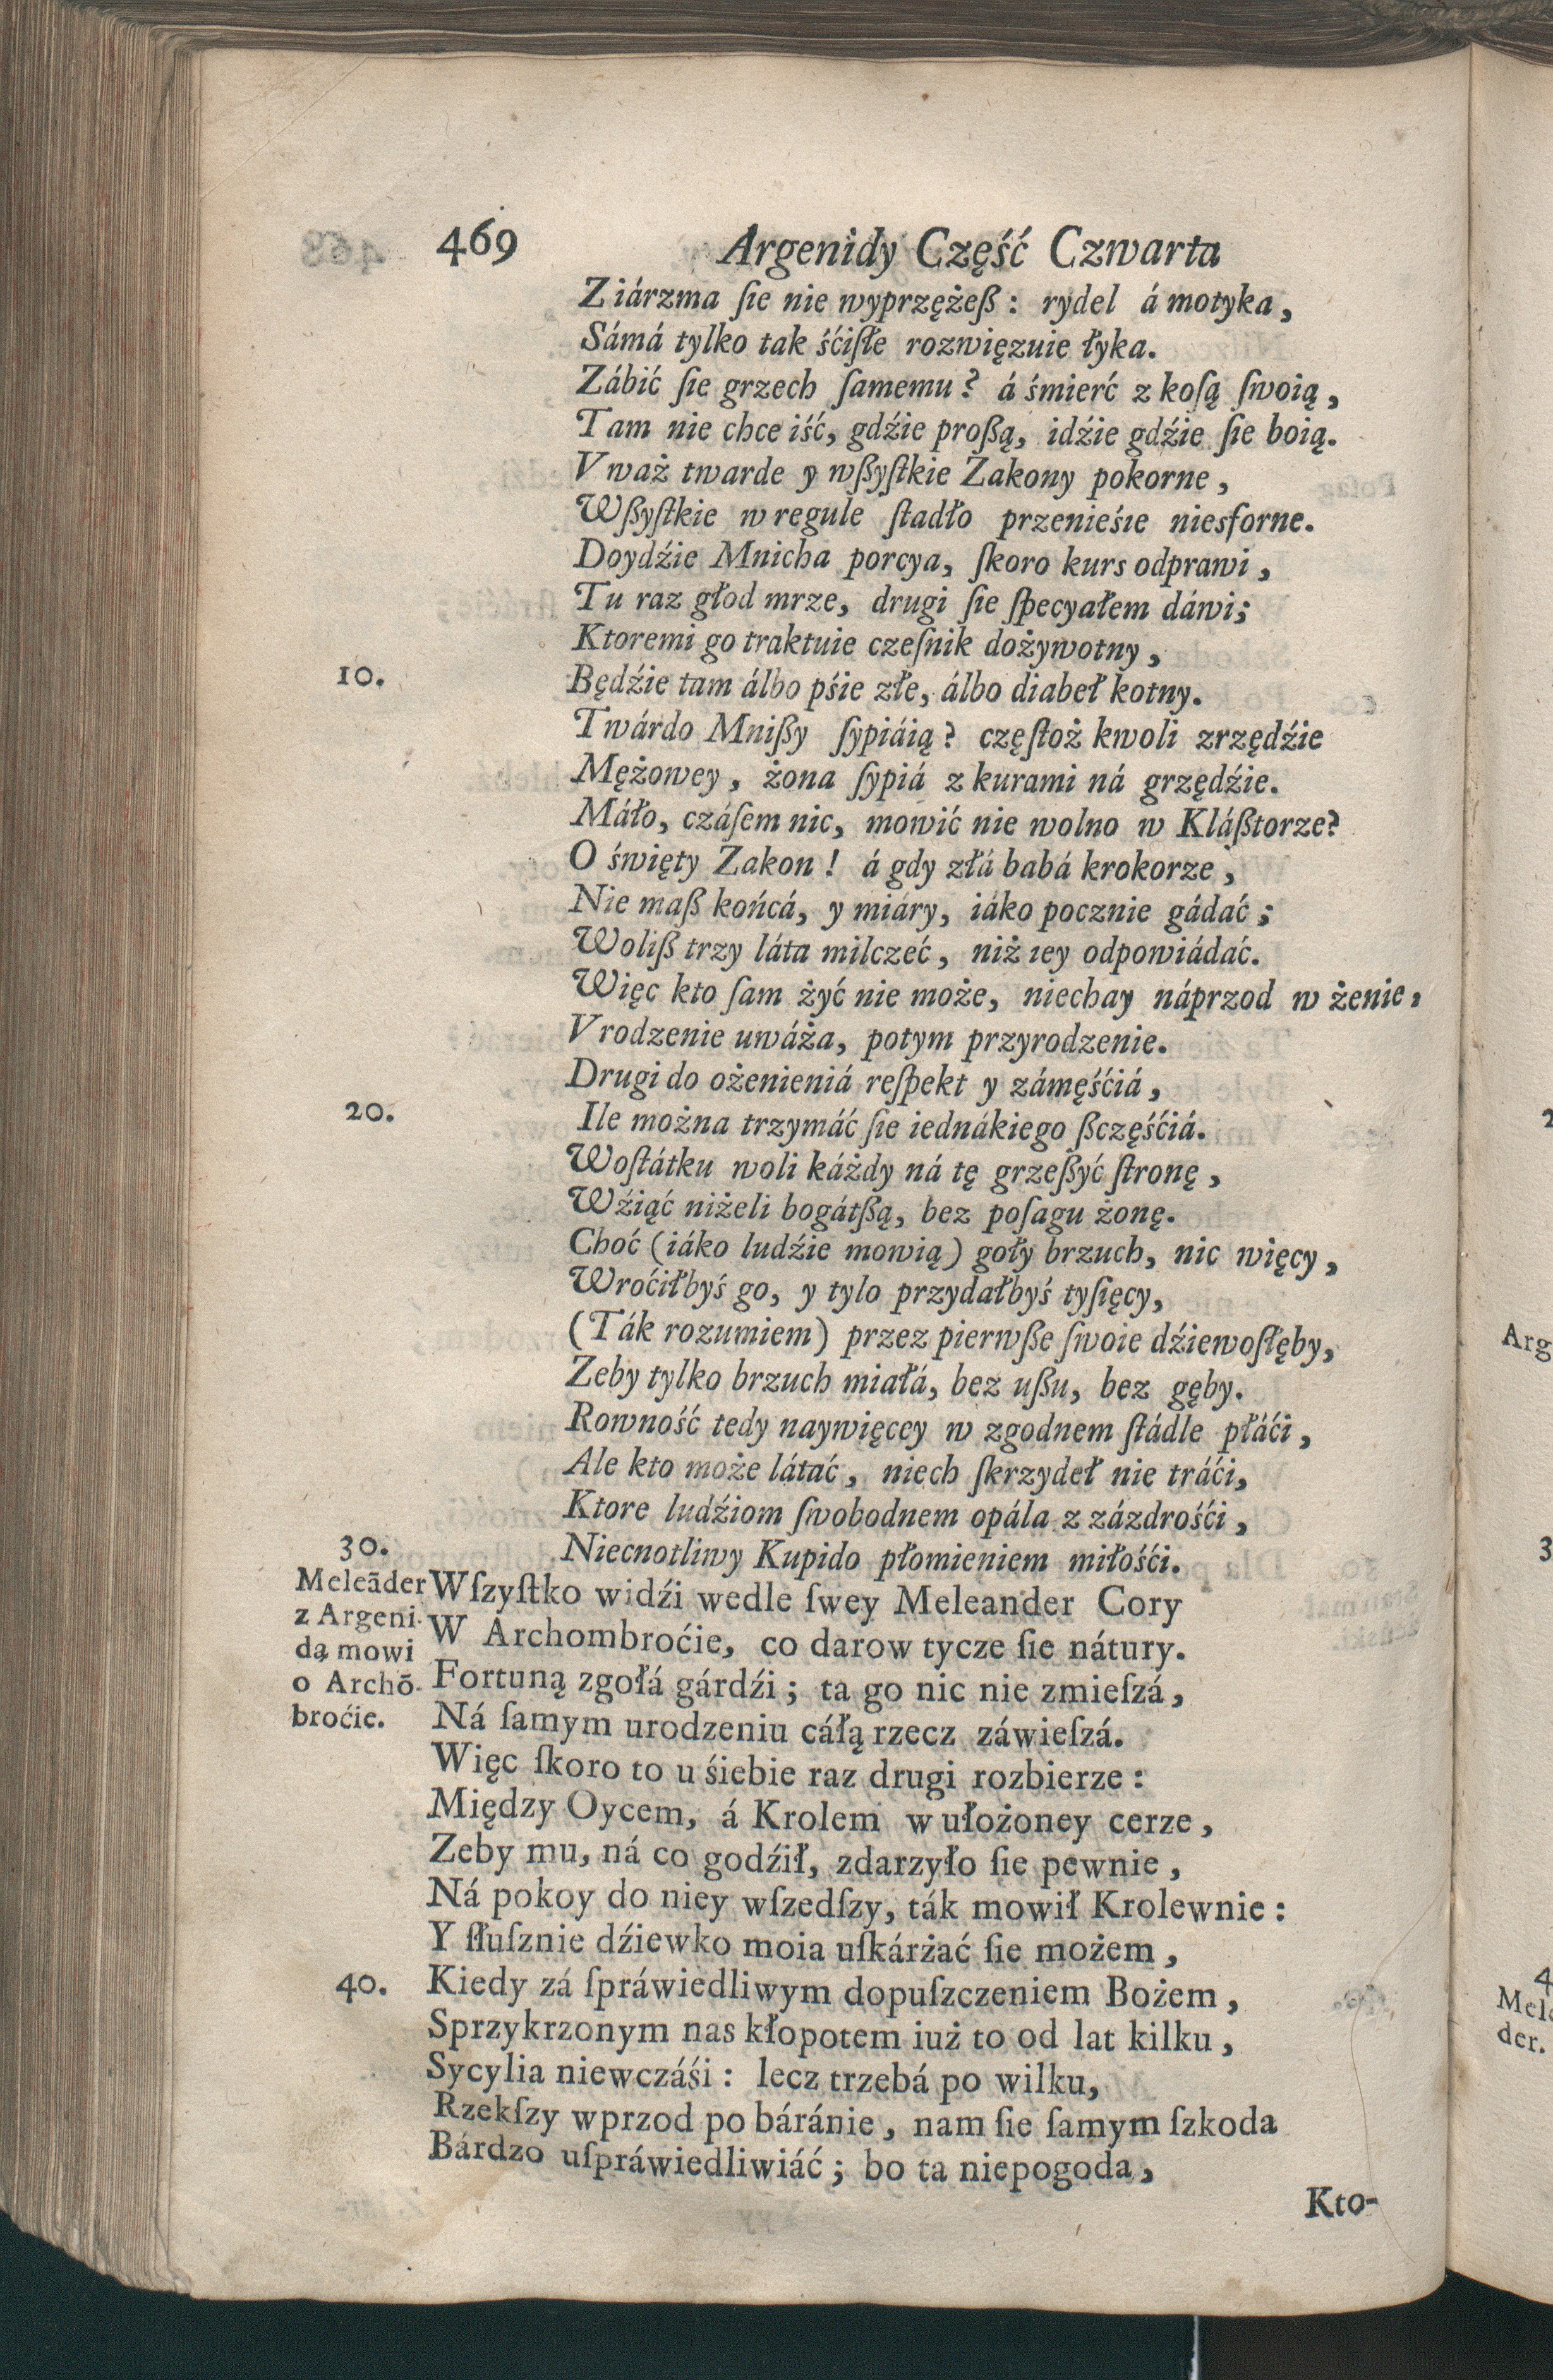 469 Argenidy Część Czwarta
Z iárzma ſie nie wyprzężeß: rydel á motyka,
Sámá tylko tak śćiſłe rozwięzuie łyka.
Zábić ſie grzech ſamemu? á śmierć z koſą ſwoią,
Tam nie chce iść, gdźie proßą, idźie gdźie ſie boią.
Vważ twarde y wßyſtkie Zakony pokorne,
Wßyſtkie w regule ſtadło przenieśie niesforne.
Doydźie Mnicha porcya, ſkoro kurs odprawi,
Tu raz głod mrze, drugi ſie ſpecyałem dáwi;
Ktoremi go traktuie czeſnik dożywotny,
10. Będźie tam álbo pśie złe, álbo diabeł kotny.
Twárdo Mnißy ſypiáią? częſtoż kwoli zrzędźie
Mężowey, żona ſypiá z kurami ná grzędźie.
Máło, czáſem nic, mowić nie wolno w Kláßtorze?
O święty Zakon! á gdy złá babá krokorze,
Nie maß końcá, y miáry, iáko pocznie gádać;
Woliß trzy láta milczeć, niż iey odpowiádáć.
Więc kto ſam żyć nie może, niechay náprzod w żenie,
Vrodzenie uwáża, potym przyrodzenie.
Drugi do ożenieniá reſpekt y zámęśćiá,
20. Ile można trzymáć ſie iednákiego ßczęśćiá.
Woſtátku woli káżdy ná tę grzeßyć ſtronę,
Wźiąć niżeli bogátßą, bez poſagu żonę.
Choć (iáko ludźie mowią) goły brzuch, nic więcy,
Wroćiłbyś go, y tylo przydałbyś tyſięcy,
(Ták rozumiem) przez pierwße ſwoie dźiewoſłęby,
Zeby tylko brzuch miałá, bez ußu, bez gęby.
Rowność tedy naywięcey w zgodnem ſtádle płáći,
Ale kto może látać, niech ſkrzydeł nie tráći,
Ktore ludźiom ſwobodnem opála z zázdrośći,
30. Niecnotliwy Kupido płomieniem miłośći.
Meleāder
z Argeni-
dą mowi
o Archō-
broćie.
Wſzyſtko widźi wedle ſwey Meleander Cory
W Archombroćie, co darow tycze ſie nátury.
Fortuną zgołá gárdźi; ta go nic nie zmieſzá,
Ná ſamym urodzeniu cáłą rzecz záwieſzá.
Więc ſkoro to u śiebie raz drugi rozbierze:
Między Oycem, á Krolem w ułożoney cerze,
Zeby mu, ná co godźił, zdarzyło ſie pewnie,
Ná pokoy do niey wſzedſzy, ták mowił Krolewnie:
Y ſłuſznie dźiewko moia uſkárżać ſie możem,
40. Kiedy zá ſpráwiedliwym dopuſzczeniem Bożem,
Sprzykrzonym nas kłopotem iuż to od lat kilku,
Sycylia niewczáśi: lecz trzebá po wilku,
Rzekſzy wprzod po báránie, nam ſie ſamym ſzkoda
Bárdzo uſpráwiedliwiáć; bo ta niepogoda,
Kto-
Arg
Mele
der.